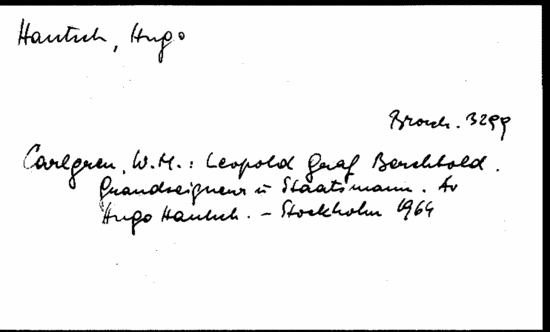 Hantsch, Hugo
Brosch. 3299
Carlgren, W.M.: Leopold Graf Berchtold.
Grandseigneur u Staatsmann. Av
Hugo Hantsch. - Stockholm 1964